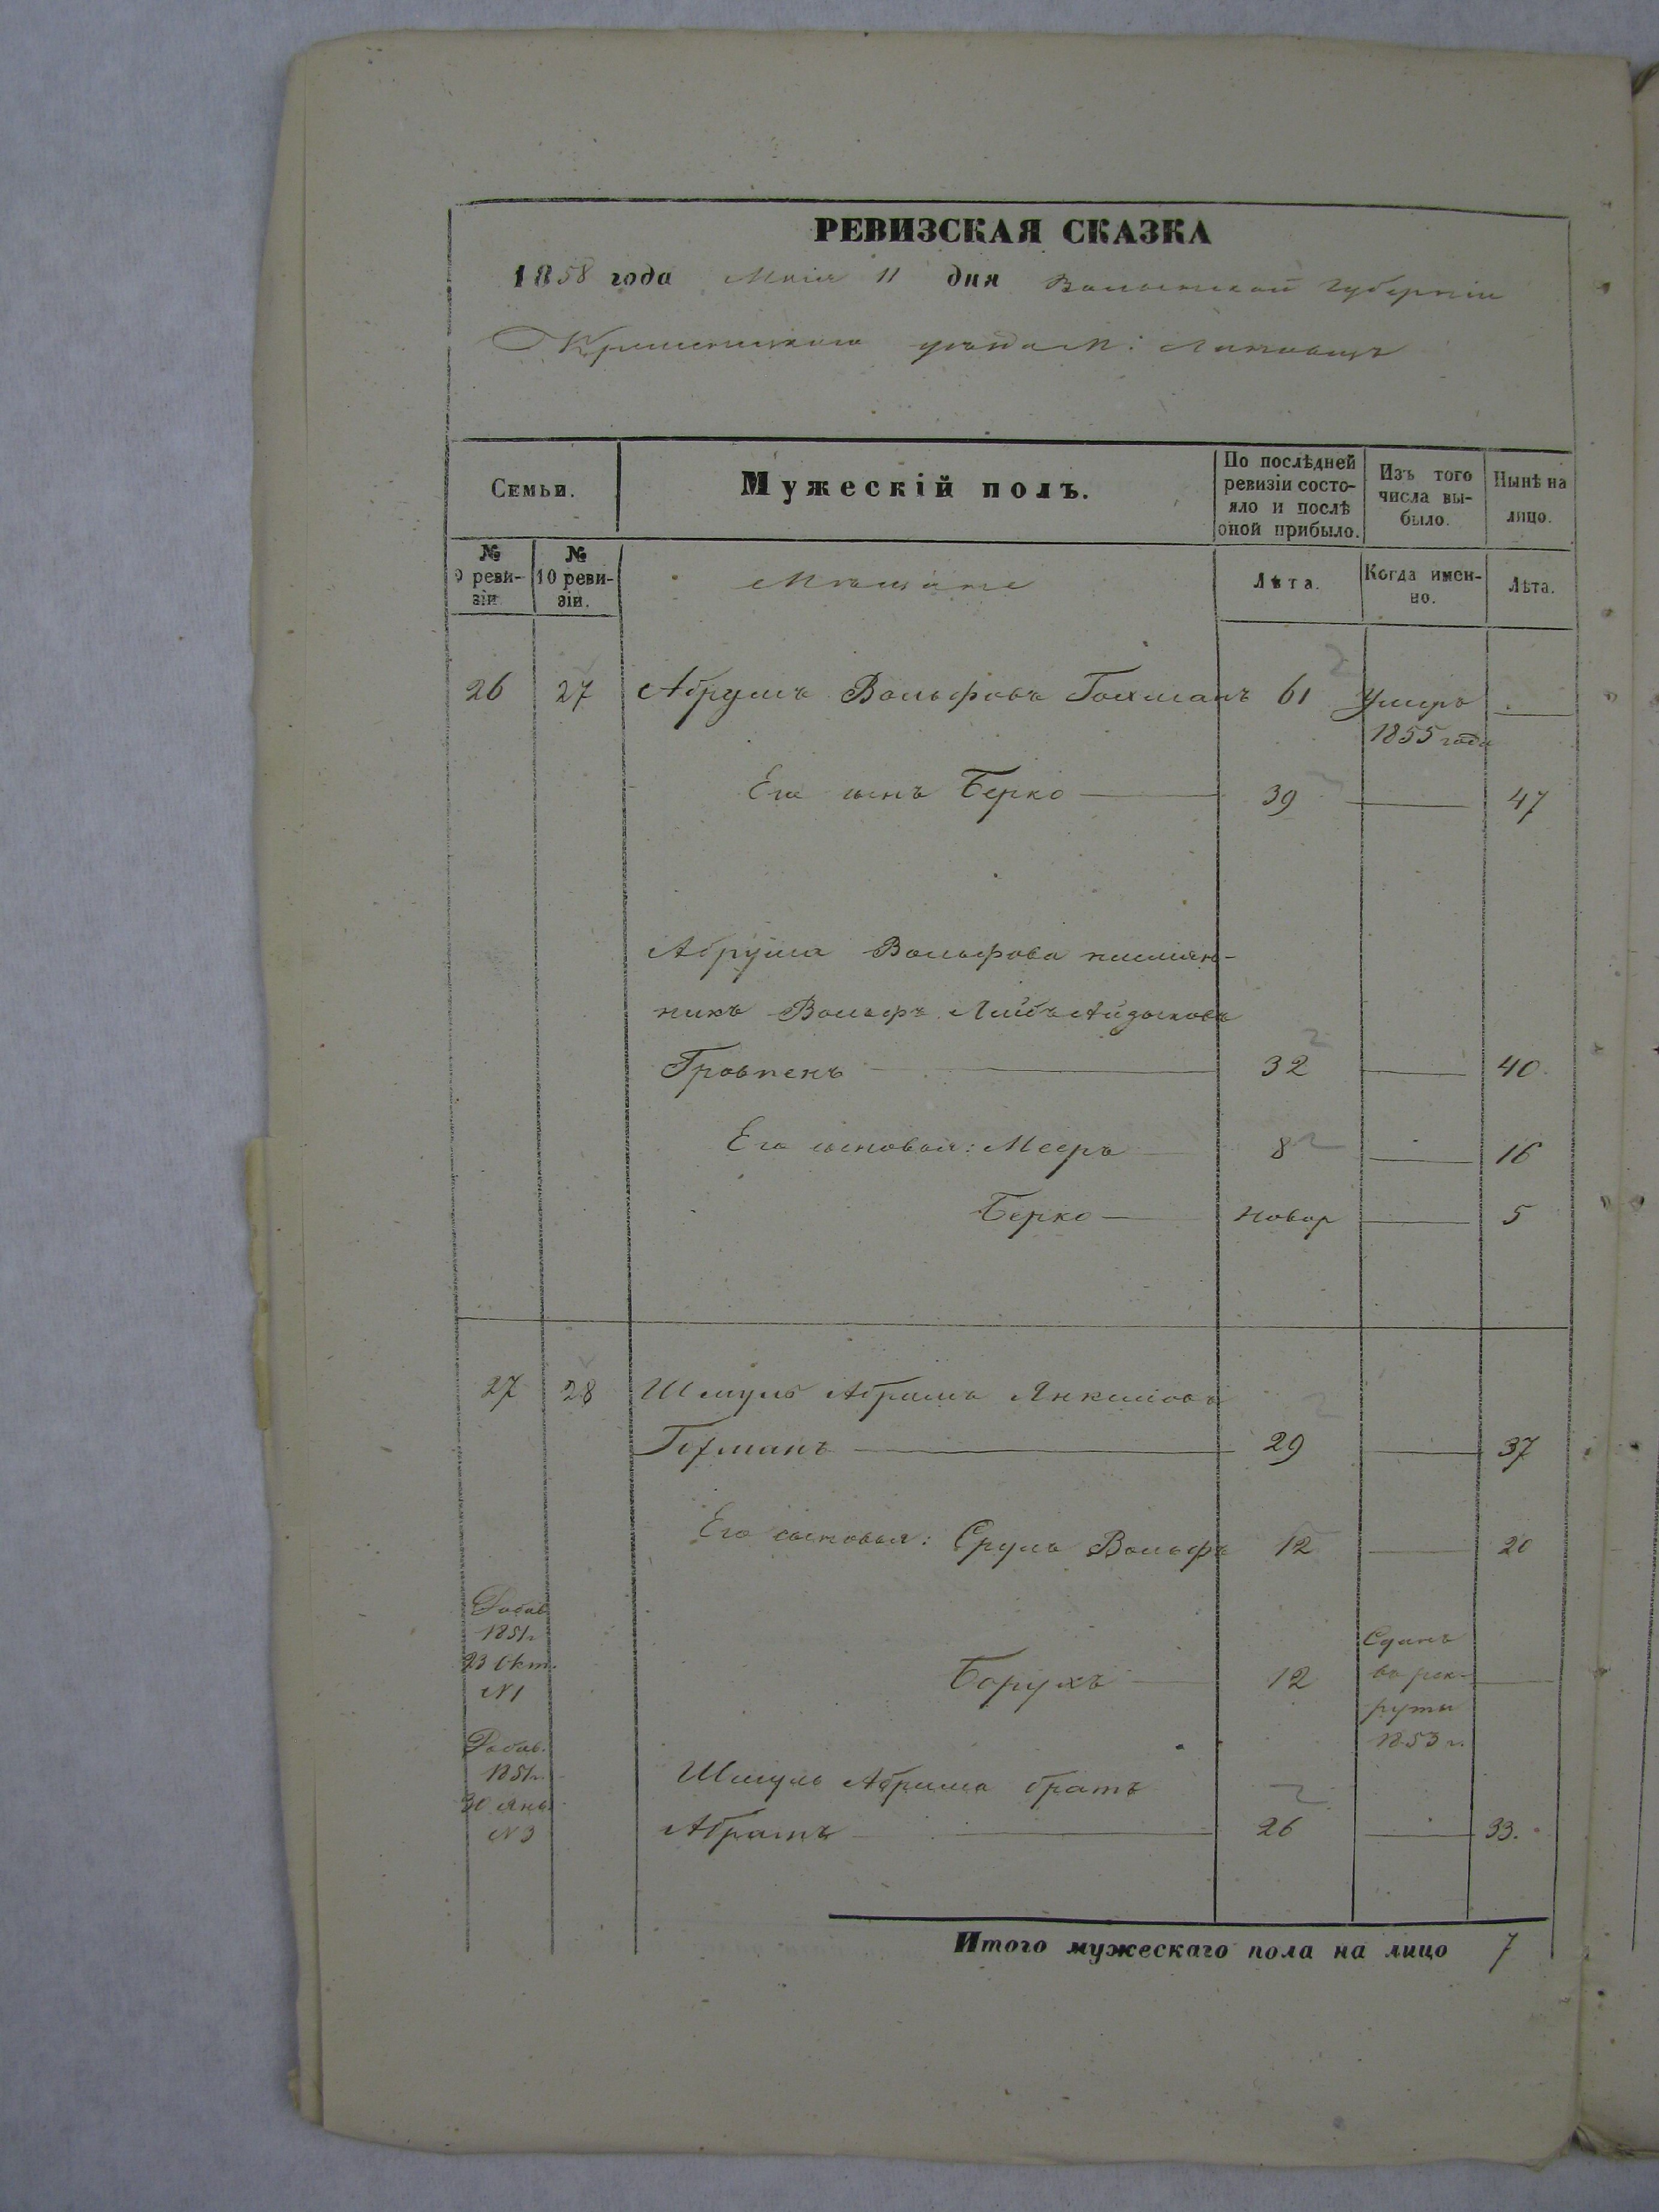 РЕВИЗСКАЯ СКАЗКА
1858 года Маія 11 дня Волынской Губерніи
Кременецкаго уѣзда М: Ляховецъ
Семьи.
Мужескій полъ.
По послѣдней ревизіи состо-
яло и послѣ
оной прибыло.
Изъ того
числа вы-
было.
Нынѣ на
лицо.
№
9 реви-
зіи.
№
10 реви-
зіи.
Мѣщане
Лѣта.
Когда имен-
но.
Лѣта.
26 27 Абрумъ Вольфовъ Гохманъ 61 Умеръ
1855 года
Его сынъ Берко 39 47
Абрума Вольфова племян-
никъ Вольфъ Лейбъ
32 40
Его сыновья: Мееръ 8 16
Берко Новор 5
27 28 Шмуль Абрамъ Янкелевъ
29 37
Его сыновья: Сруль Вольфъ 12 20
Добав.
1851 г.
23 Окт.
№ 1
Борухъ 12
Сданъ
въ рек-
руты
1853 г.
Добав.
1851 г.
30 Янв.
№ 3
Шмуль Абрама братъ
26 33.
Итого мужескаго пола на лицо 7